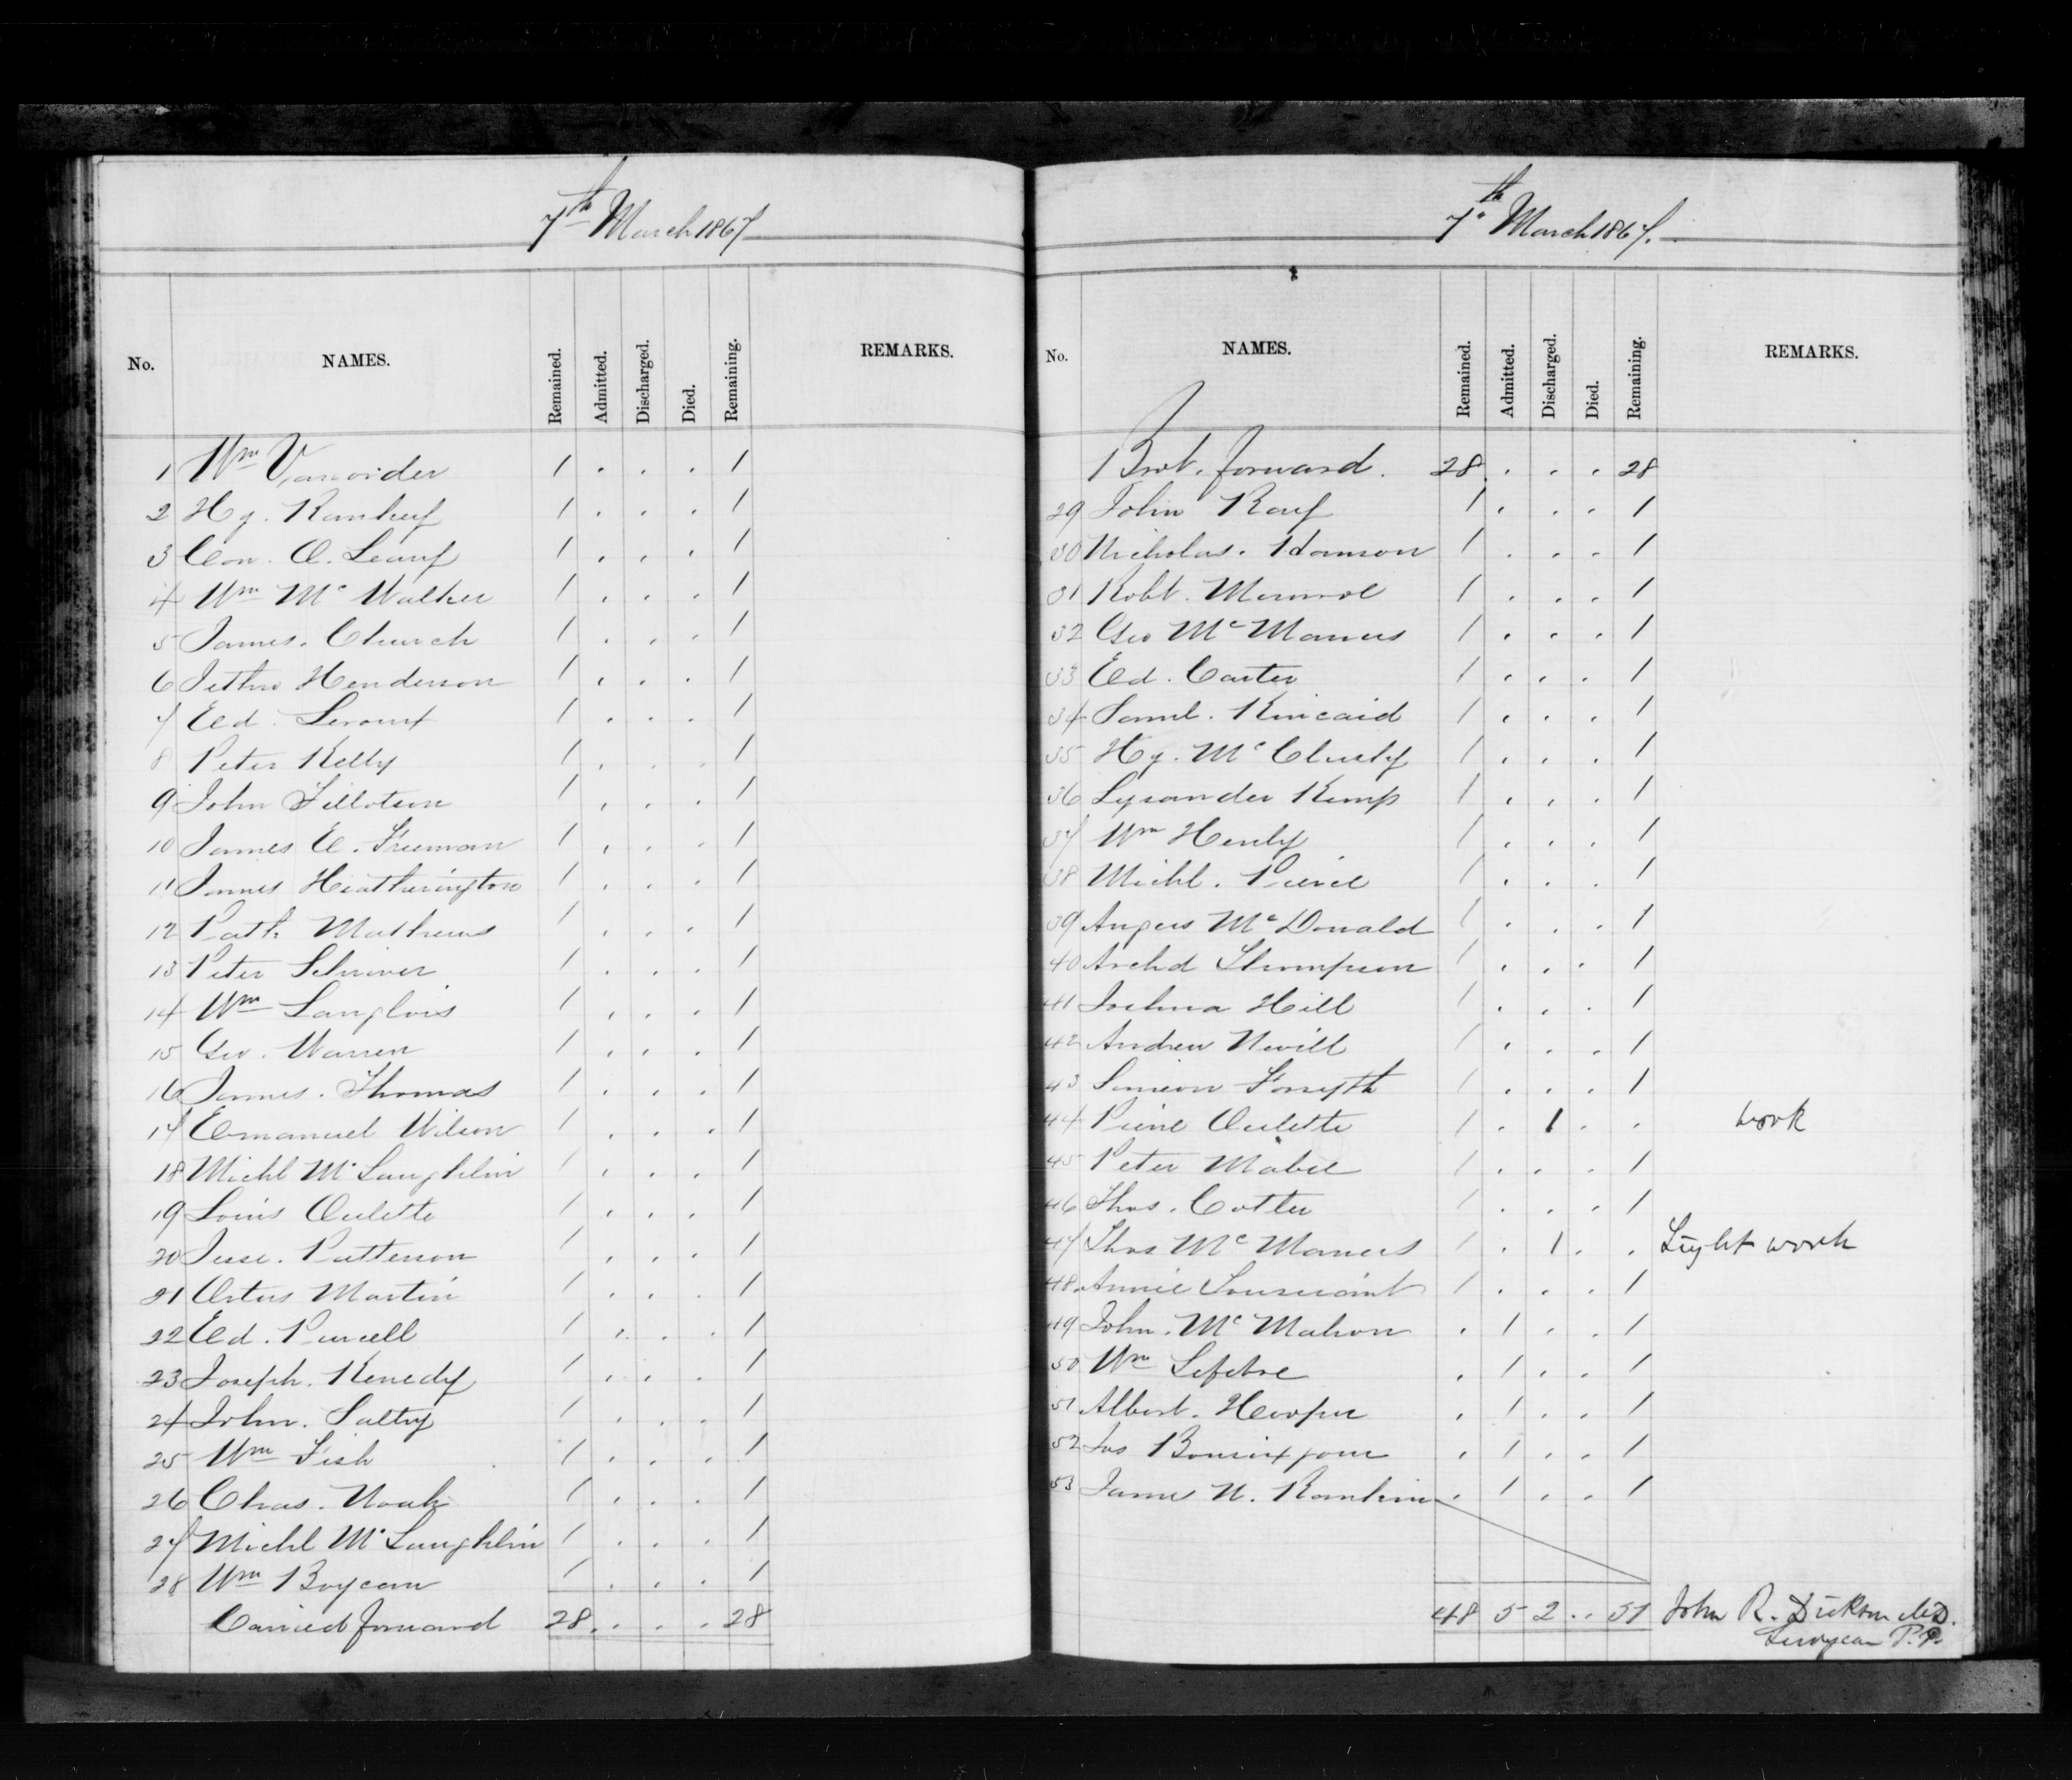 7th March 1867
No. NAMES. Remained. Admitted. Discharged. Died. Remaining. REMARKS.
1 Wm Vanorder 1 . . . 1
2 Hy. 1 . . . 1
3 Con. O. Leary 1 . . . 1
4 Wm Mc Walker 1 . . . 1
5 James. Church 1 . . . 1
6 Jethro Henderson 1 . . . 1
7 Ed. Leroux 1 . . . 1
8 Peter Kelly 1 . . . 1
9 John Tillotson 1 . . . 1
10 James E. Freeman 1 . . . 1
11 James Heatherington 1 . . . 1
12 Patk Mathews 1 . . . 1
13 Peter Schriver 1 . . . 1
14 Wm Langlois 1 . . . 1
15 Geo. Warren 1 . . . 1
16 James. Thomas 1 . . . 1
17 Emanuel Wilson 1 . . . 1
18 Michl McLaughlin 1 . . . 1
19 Louis Oulette 1 . . . 1
20 Jesse. Patterson 1 . . . 1
21 Martin 1 . . . 1
22 Ed. Purcell 1 . . . 1
23 Joseph. Kenedy 1 . . . 1
24 John. Saltry 1 . . . 1
25 Wm Fish 1 . . . 1
26 Chas. Noak 1 . . . 1
27 Michl McLaughlin 1 . . . 1
28 Wm 1 . . . 1
Carried forward 28 . . . 28
7th March 1867.
No. NAMES. Remained. Admitted. Discharged. Died. Remaining. REMARKS.
Brot. forward. 28 . . . 28
29 John 1 . . . 1
30 Nicholas. 1 . . . 1
31 Robt. 1 . . . 1
32 Geo McManus 1 . . . 1
33 Ed. Carter 1 . . . 1
34 Saml. Kincaid 1 . . . 1
35 Hy. Mc Clusky 1 . . . 1
36 Lysander Kemp 1 . . . 1
37 Wm Henly 1 . . . 1
38 Michl. 1 . . . 1
39 Angus McDonald 1 . . . 1
40 Archd Thompson 1 . . . 1
41 Joshua Hill 1 . . . 1
42 Andrew Nevill 1 . . . 1
43 Simeon Forsyth 1 . . . 1
44 Pierre Oulette 1 . 1 . . work
45 Peter Mabee 1 . . . 1
46 Thos. Cotter 1 . . . 1
47 Thos McManus 1 . 1 . . Light work
48 Annie Toussaint 1 . . . 1
49 John. McMahon . 1 . . 1
50 Wm Lefebre . 1 . . 1
51 Albert. Hooper . 1 . . 1
52 . 1 . . 1
53 James N. Rankin . 1 . . 1
48 5 2 . . 51 John R. Dickson M.D.
Surgeon P.P.